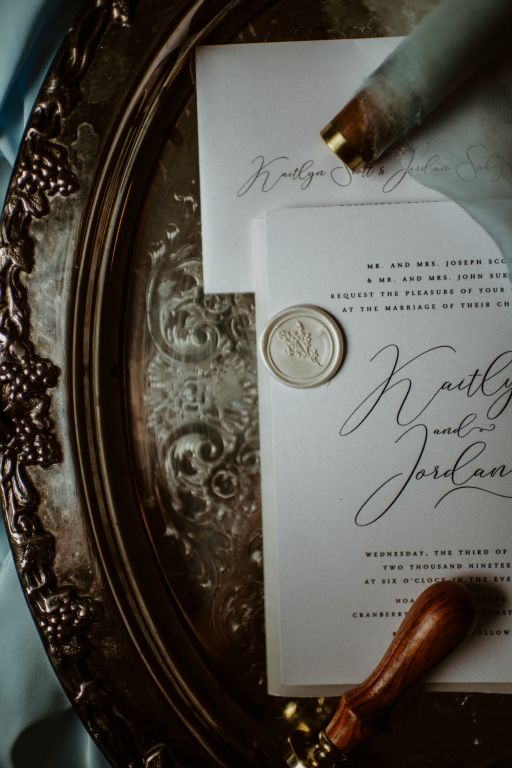 Kaitlyn Scott & Jordan
MR. AND MRS. JOSEPH
& MR. AND MRS. JOHN
REQUEST THE PLEASURE OF YOUR
AT THE MARRIAGE OF THEIR
Kaitly
and
Jordan
WEDNESDAY, THE THIRD OF
TWO THOUSAND NINETEE
AT SIX O'CLOCK IN THE EVE
NOA
CRANBERRY
OLLOW